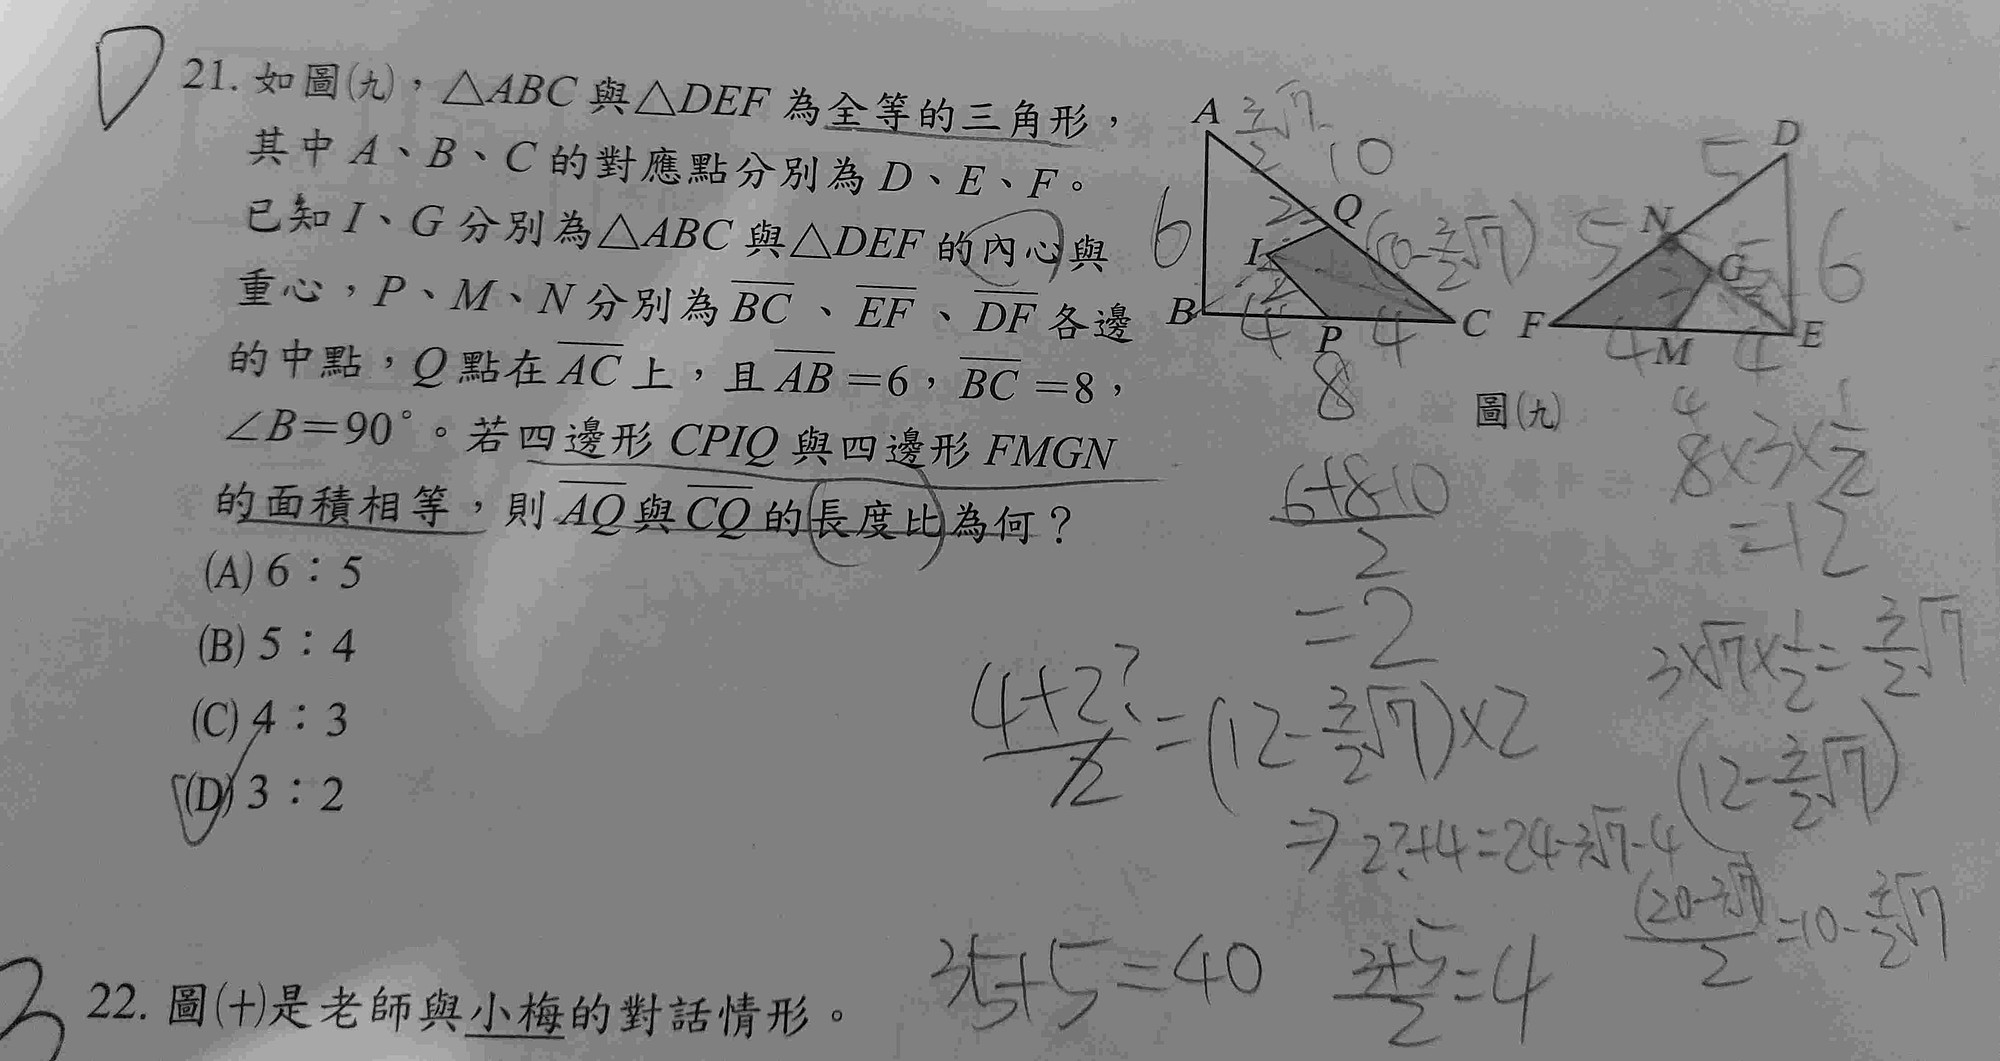 D
21. 如圖(九)，△ABC與△DEF為全等的三角形，
其中A、B、C的對應點分別為D、E、F。
已知I、G分別為△ABC與△DEF的內心與
重心，P、M、N分別為BC、EF、DF各邊
的中點，Q點在AC上，且AB=6，BC=8，
∠B=90°。若四邊形CPIQ與四邊形FMGN
的面積相等，則AQ與CQ的長度比為何？
(A) 6：5
(B) 5：4
(C) 4：3
(D) 3：2
A
10
6
Q
I
B
4
P
4
C
8
D
5
N
5
G
6
F
4
M
4
E
圖(九)
6+8-10
2
=2
8×3×1/2
=12
3×√7×1/2=3/2√7
(12-3/2√7)
4+2?/2=(12-3/2√7)×2
⇒ 2?+4=24-3√7-4
(20-3√7)/2=10-3/2√7
35+5=40
3+5/2=4
22. 圖(十)是老師與小梅的對話情形。